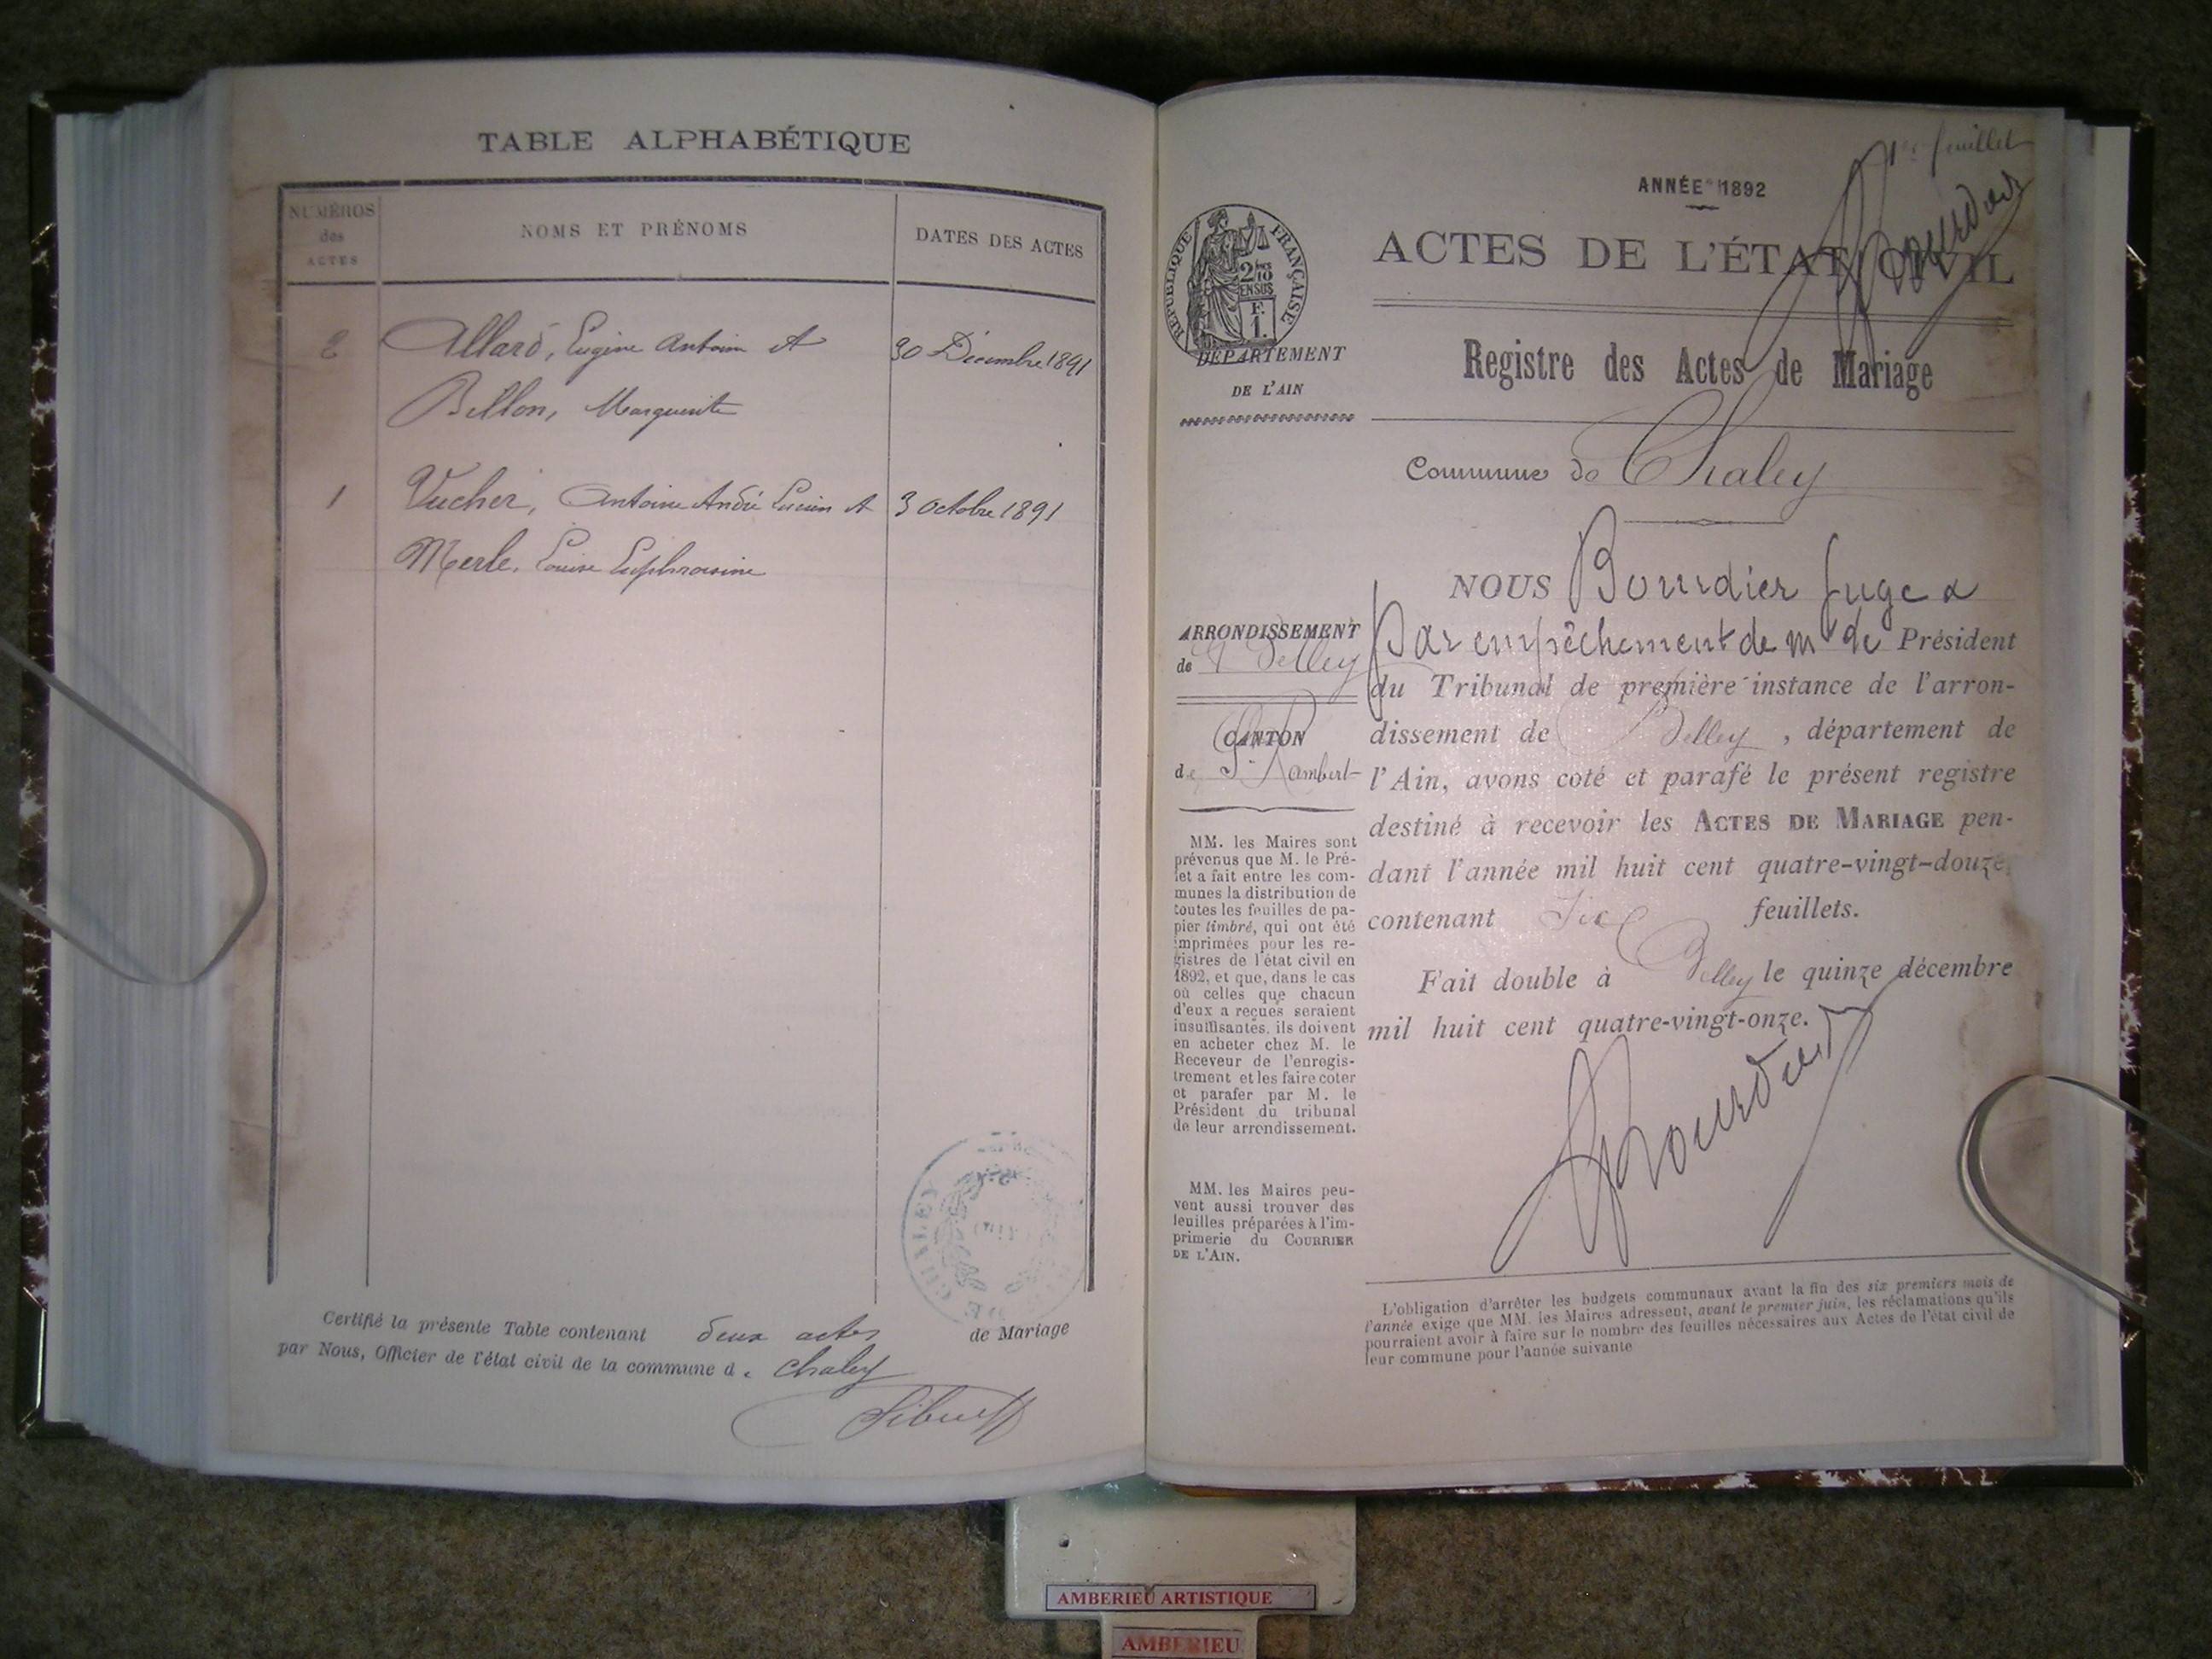 TABLE ALPHABÉTIQUE
NUMÉROS
des
ACTES
NOMS ET PRÉNOMS
DATES DES ACTES
2 Allard, Eugène Antoine et 30 Décembre 1891
Bellon, Marguerite
1 Vucher, Antoine André Lucien et 3 Octobre 1891
Merle, Louise Euphrosine
CHALEY
Certifié la présente Table contenant deux actes de Mariage
par Nous, Officier de l'état civil de la commune d. Chaley
1er feuillet
Bourdier
ANNÉE 1892
RÉPUBLIQUE FRANÇAISE
2/10
EN SUS
F.
1.
ACTES DE L'ÉTAT CIVIL
DÉPARTEMENT
DE L'AIN
Registre des Actes de Mariage
Commune de Chaley
ARRONDISSEMENT
de Belley
CANTON
de St Rambert
MM. les Maires sont
prévenus que M. le Pré-
fet a fait entre les com-
munes la distribution de
toutes les feuilles de pa-
pier timbré, qui ont été
imprimées pour les re-
gistres de l'état civil en
1892, et que, dans le cas
où celles que chacun
d'eux a reçues seraient
insuffisantes, ils doivent
en acheter chez M. le
Receveur de l'enregis-
trement et les faire coter
et parafer par M. le
Président du tribunal
de leur arrondissement.
MM. les Maires peu-
vent aussi trouver des
feuilles préparées à l'im-
primerie du COURRIER
DE L'AIN.
NOUS Bourdier Juge
par empêchement de Mr le Président
du Tribunal de première instance de l'arron-
dissement de Belley, département de
l'Ain, avons coté et parafé le présent registre
destiné à recevoir les ACTES DE MARIAGE pen-
dant l'année mil huit cent quatre-vingt-douze,
contenant Six feuillets.
Fait double à Belley le quinze décembre
mil huit cent quatre-vingt-onze.
Bourdier
L'obligation d'arrêter les budgets communaux avant la fin des six premiers mois de
l'année exige que MM. les Maires adressent, avant le premier juin, les réclamations qu'ils
pourraient avoir à faire sur le nombre des feuilles nécessaires aux Actes de l'état civil de
leur commune pour l'année suivante
AMBERIEU ARTISTIQUE
AMBERIEU